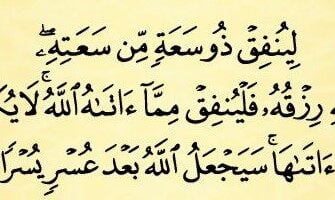 لِيُنفِقْ ذُو سَعَةٍ مِّن سَعَتِهِۦ ۖ
رِزْقُهُۥ فَلْيُنفِقْ مِمَّآ ءَاتَىٰهُ ٱللَّهُ ۚ لَا
ءَاتَىٰهَا ۚ سَيَجْعَلُ ٱللَّهُ بَعْدَ عُسْرٍ يُسْرًا